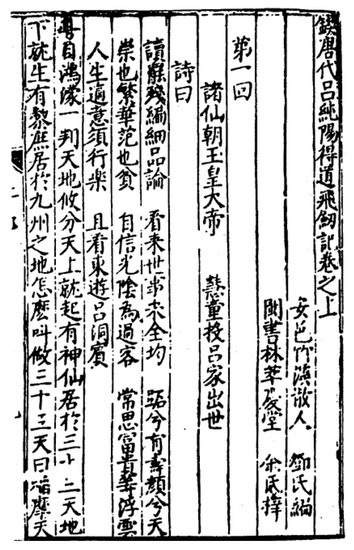 鍥唐代吕純陽得道飛劒記卷之上
安邑竹溪散人 鄧氏編
閩書林萃慶堂 余氏梓
第一回
諸仙朝玉皇大帝 慧童投吕家出世
詩曰
讀罷殘編細品論 看来世事未全均 跖兮有壽顏兮夭
崇也繁華范也貧 自信光陰為過客 常思冨貴華浮雲
人生適意須行樂 且看東遊吕洞賔
粤自鴻濛一判天地攸分天上就起有神仙居於三十三天地
下就生有黎庶居於九州之地怎麽叫做三十三天曰磨天